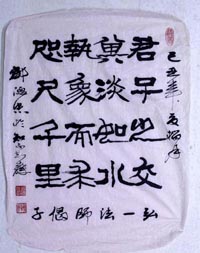 己丑年
君子之交
其淡如水
執象而求
咫尺千里
弘一法師偈子